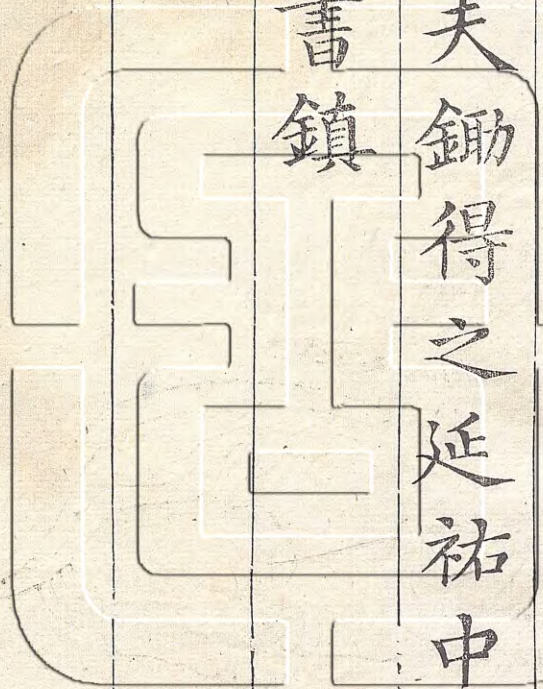 夫鋤得之延祐中
書鎮